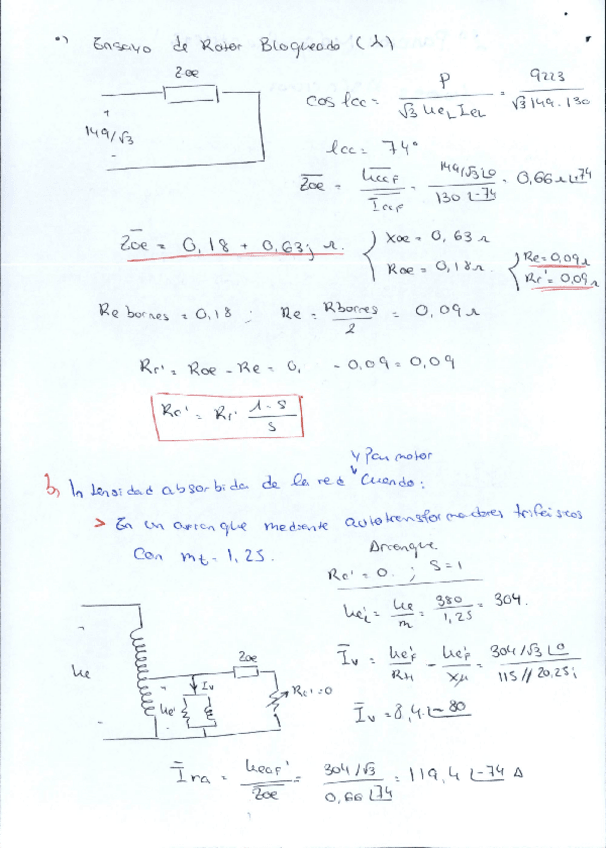 ·) Ensayo de Rotor Bloqueado (λ)
Zoe
+
149/√3
-
cos ℓcc = P / √3 UeL IeL = 9223 / √3 149·130
ℓcc = 74°
Zoe = UccF / IccF = 149/√3 ∠0 / 130 ∠-74 = 0,66 Ω ∠74
Zoe = 0,18 + 0,63j Ω.
Xoe = 0,63 Ω
Roe = 0,18 Ω.
Re = 0,09 Ω
Rr' = 0,09 Ω
Re bornes = 0,18 ; Re = Rbornes / 2 = 0,09 Ω
Rr' = Roe - Re = 0, - 0,09 = 0,09
Rc' = Rr' 1-S / S
y Par motor
b) Intensidad absorbida de la red cuando:
> En un arranque mediante autotransformadores trifásicos
con mt = 1,25.
Arranque
Rc' = 0. ; S = 1
Ue'L = Ue / m = 380 / 1,25 = 304.
Ue
+
-
Zoe
+ Iv
Ue'
-
Rc' = 0
Iv = Ue'F / RH - Ue'F / Xμ = 304/√3 ∠0 / 115 // 20,25j
Iv = 8,4 ∠-80
Ira = UeoF' / Zoe = 304/√3 / 0,66 ∠74 = 119,4 ∠-74 A